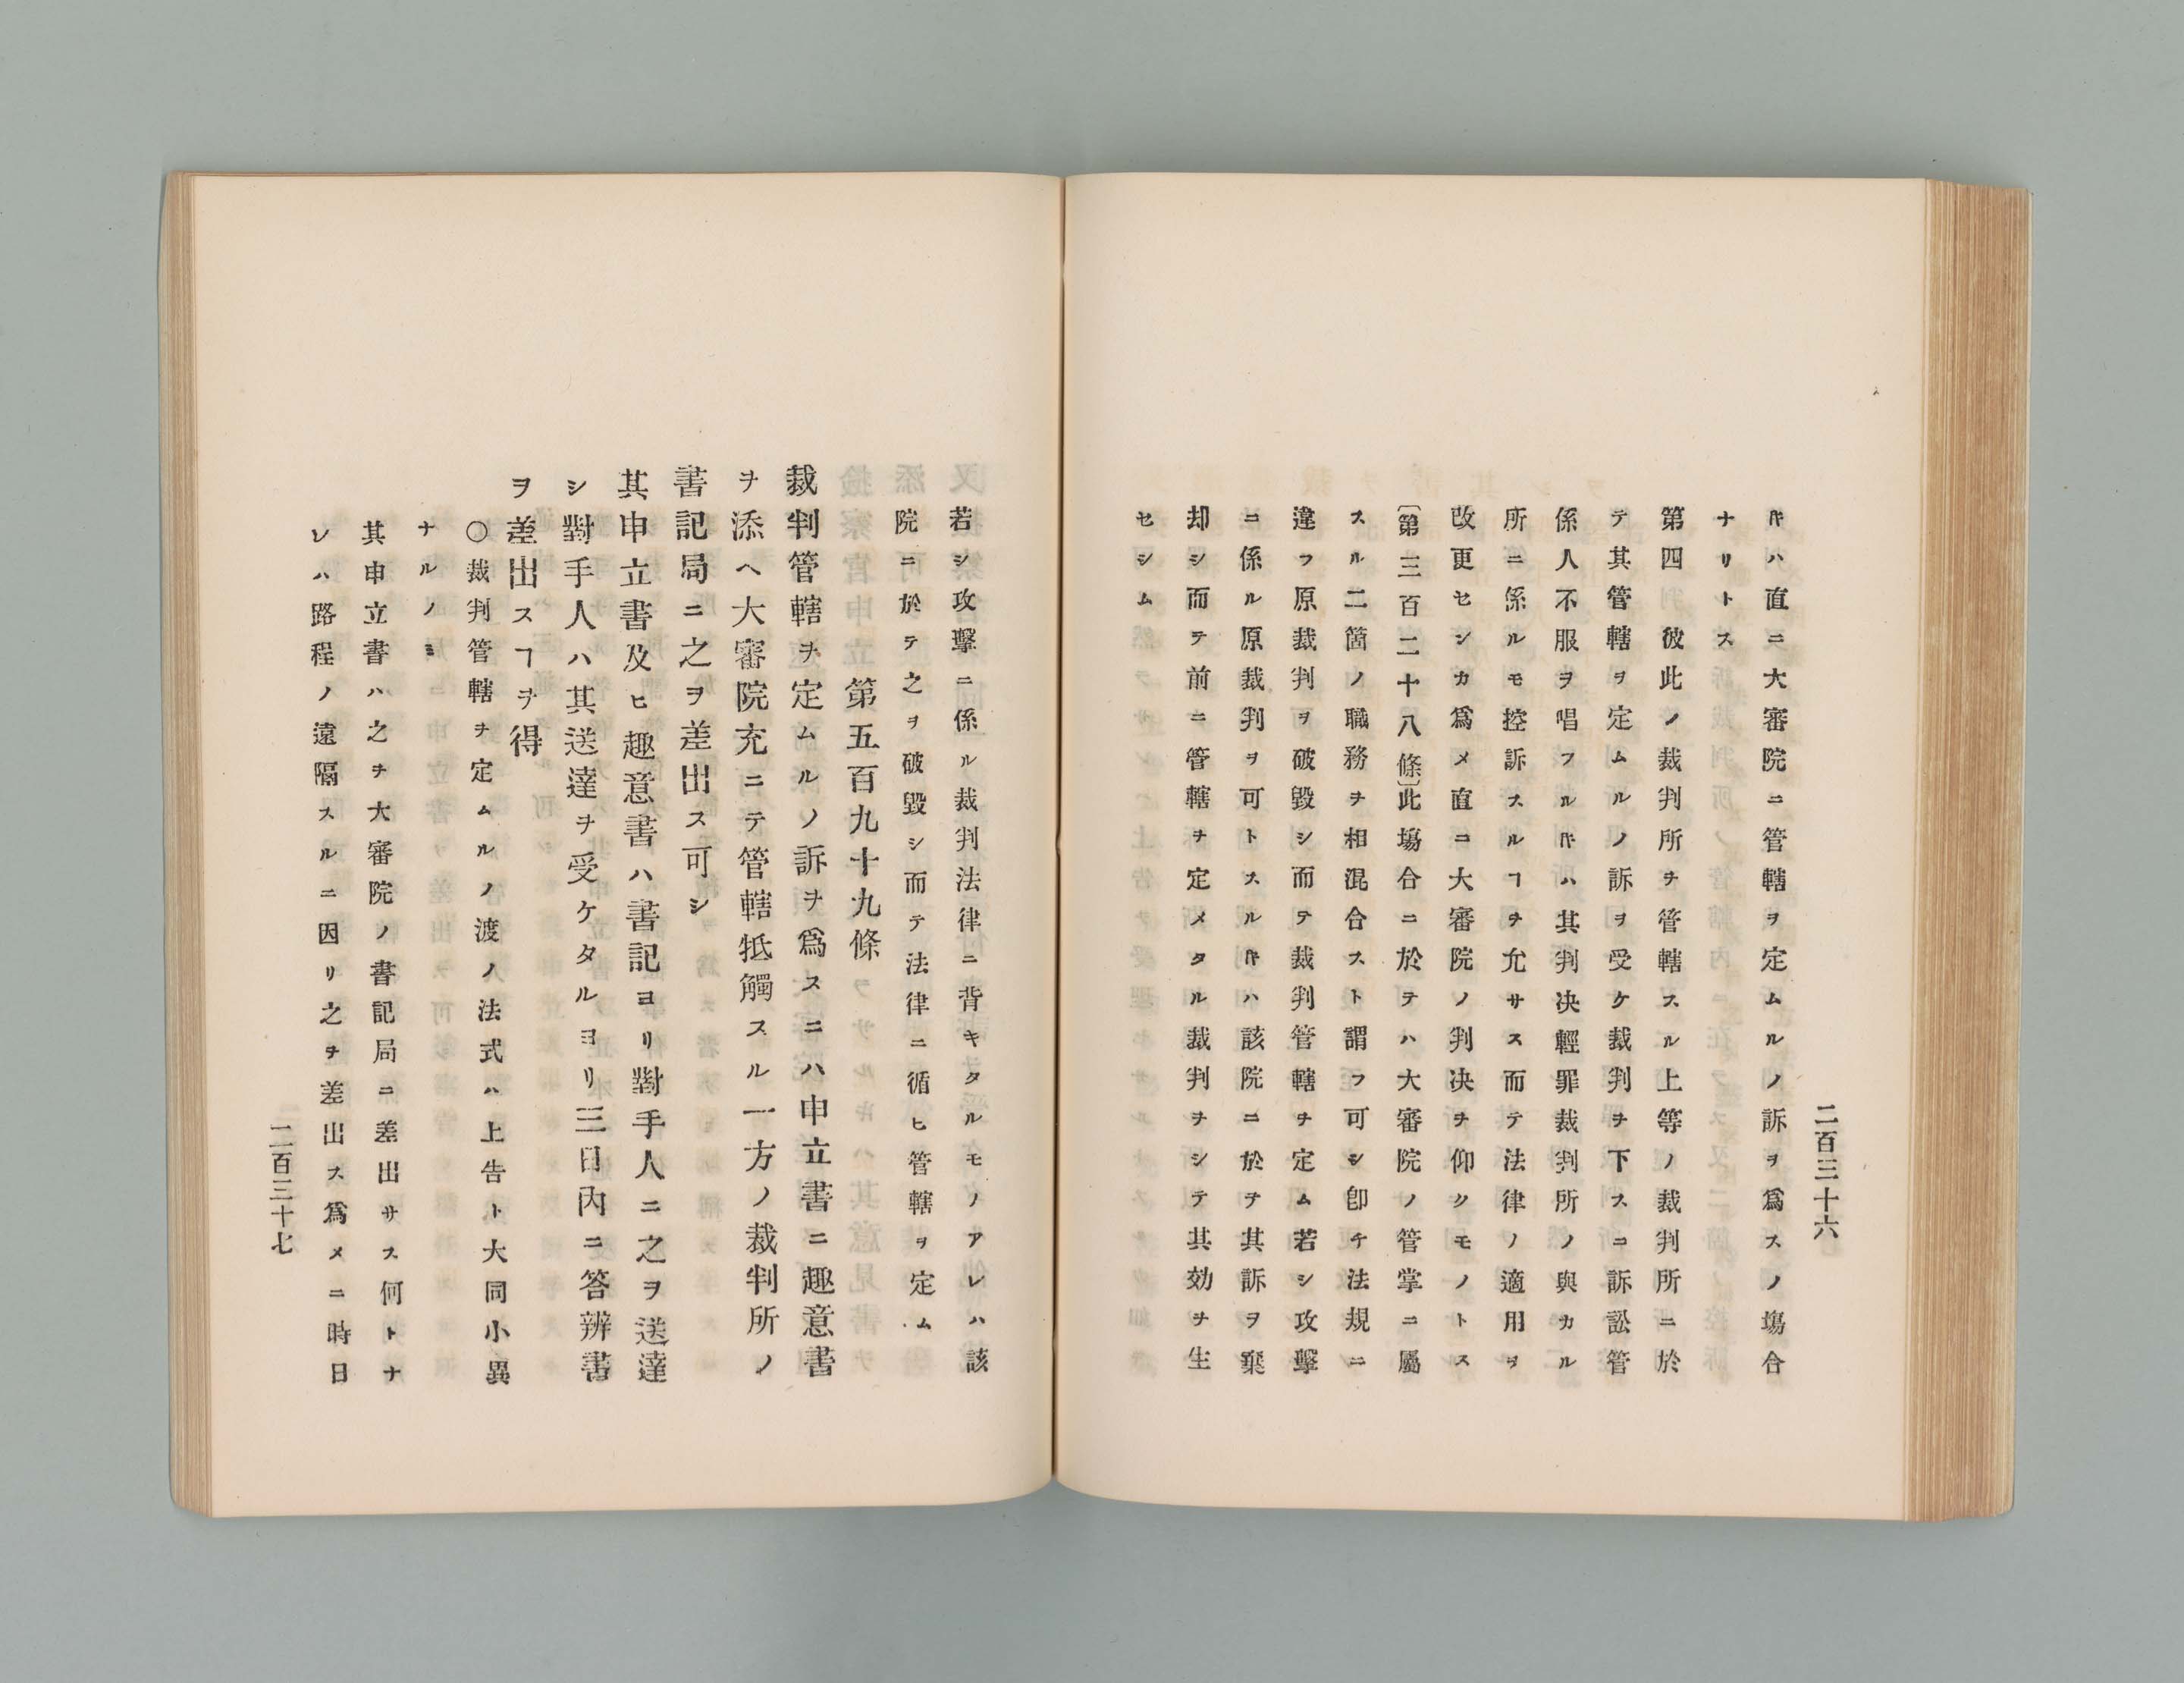 二百三十六
𪜈ハ直ニ大審院ニ管轄ヲ定ムルノ訴ヲ爲スノ塲合
ナリトス
第四彼此ノ裁判所ヲ管轄スル上等ノ裁判所ニ於
テ其管轄ヲ定ムルノ訴ヲ受ケ裁判ヲ下スニ訴訟管
係人不服ヲ唱フル𪜈ハ其判决輕罪裁判所ノ與カル
所ニ係ルモ控訴スルヿヲ允サス而テ法律ノ適用ヲ
改更セシカ爲メ直ニ大審院ノ判决ヲ仰クモノトス
〔第三百二十八條〕此塲合ニ於テハ大審院ノ管掌ニ屬
スル二箇ノ職務ヲ相混合スト謂フ可シ卽チ法規ニ
違フ原裁判ヲ破毀シ而テ裁判管轄ヲ定ム若シ攻擊
ニ係ル原裁判ヲ可トスル𪜈ハ該院ニ於テ其訴ヲ棄
却シ而テ前ニ管轄ヲ定メタル裁判ヲシテ其効ヲ生
セシム
若シ攻擊ニ係ル裁判法律ニ背キタルモノアレハ該
院ニ於テ之ヲ破毀シ而テ法律ニ循ヒ管轄ヲ定ム
第五百九十九條
裁判管轄ヲ定ムルノ訴ヲ爲スニハ申立書ニ趣意書
ヲ添ヘ大審院充ニテ管轄抵觸スル一方ノ裁判所ノ
書記局ニ之ヲ差出ス可シ
其申立書及ヒ趣意書ハ書記ヨリ對手人ニ之ヲ送達
シ對手人ハ其送達ヲ受ケタルヨリ三日內ニ答辨書
ヲ差出スヿヲ得
〇裁判管轄ヲ定ムルノ渡ノ法式ハ上告ト大同小異
ナルノミ
其申立書ハ之ヲ大審院ノ書記局ニ差出サス何トナ
レハ路程ノ遠隔スルニ因リ之ヲ差出ス爲メニ時日
二百三十七